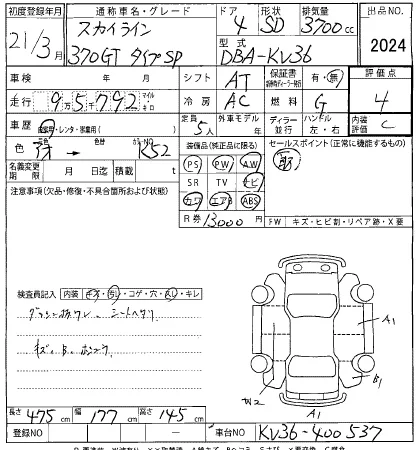 初度登録年月 通称車名・グレード ドア 形状 排気量 出品NO.
21/3月 スカイライン 4 SD 3700cc 2024
370GT タイプSP 型式 DBA-KV36
車検 年 月 シフト AT 保証書 有・無 評価点
走行 9万5千792 マイル キロ 冷房 AC 燃料 G 4
車歴 自家用・レンタ・ 定員 5人 外車モデル 年 ディーラー 並行 ハンドル 左・右 内装評価 C
色 → 色替 カラーNO K52 装備品(純正品に限る) セールスポイント(正常に機能するもの)
名義変更期限 月 日迄 積載 t PS PW AW
注意事項(欠品・修復・不具合箇所および状態) SR TV ナビ
カワ エアB ABS
R券 13000円 FW キズ・ヒビ割・リペア跡・X要
検査員記入 内装 キズ・汚レ・コゲ・穴・スレ・キレ
シートヘタリ
キズ、B、
A1
B1
W2
A1
長さ 475cm 幅 177cm 高さ 145cm
登録NO — 車台NO KV36-400537